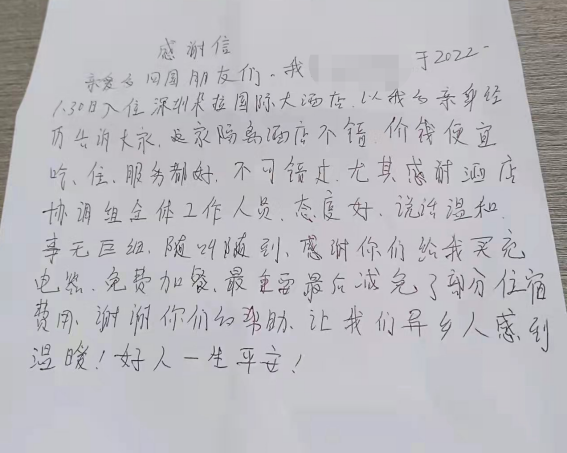 感谢信
亲爱的回国朋友们。我 于2022-
1.30日入住深圳米拉国际大酒店.以我的亲身经
历告诉大家.这家隔离酒店不错.价钱便宜
吃、住、服务都好.不可错过.尤其感谢酒店
协调组全体工作人员.态度好、说话温和.
事无巨细.随叫随到、感谢你们给我买充
电器.免费加餐.最重要最后减免了部分住宿
费用、谢谢你们的帮助.让我们异乡人感到
温暖!好人一生平安!